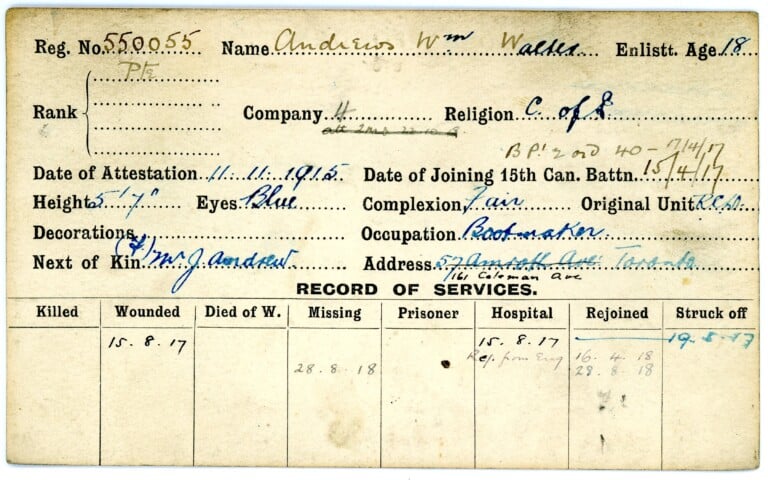 Reg. No. 550055 Name Andrews Wm Walter Enlistt. Age 18
Pte
Rank Company 4 Religion C. of E
BPt 2 ord 40 - 17/4/17
Date of Attestation 11.11.1915 Date of Joining 15th Can. Battn. 15/4/17
Height 5'7" Eyes Blue Complexion Fair Original Unit R.C.D.
Decorations Occupation Bootmaker
Next of Kin (F) Mr J. Andrew Address 57 Amroth Ave Toronto
161 Coleman Ave
RECORD OF SERVICES.
Killed Wounded Died of W. Missing Prisoner Hospital Rejoined Struck off
15.8.17 15.8.17 19.8.17
Rej. from Eng 16.4.18
28.8.18 28.8.18